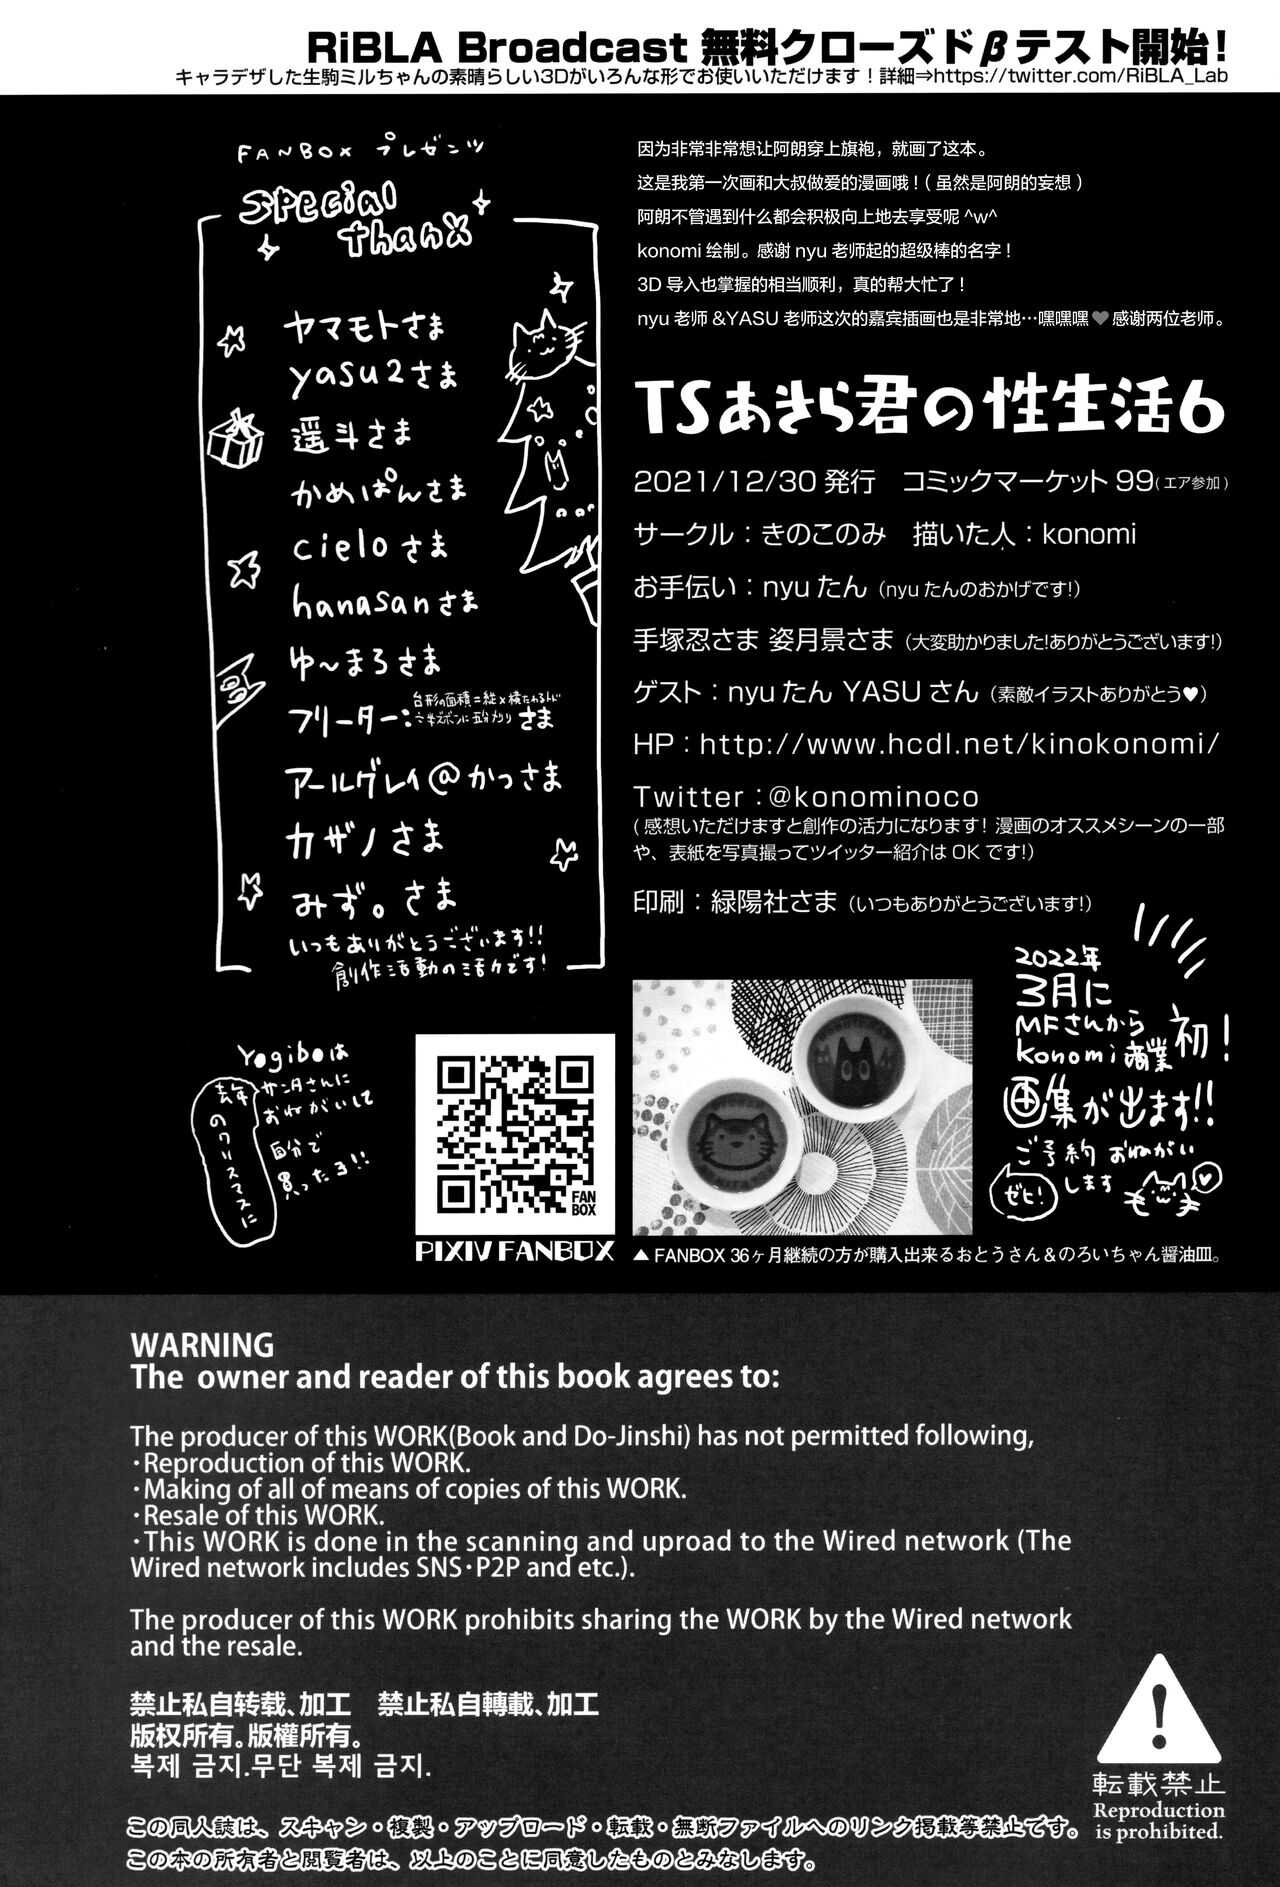 RiBLA Broadcast 無料クローズドβテスト開始!
キャラデザした生駒ミルちゃんの素晴らしい3Dがいろんな形でお使いいただけます！詳細⇒https://twitter.com/RiBLA_Lab
FANBOX プレゼンツ
Special
thanX
ヤマモトさま
yasu2さま
遥斗さま
かめぱんさま
cieloさま
hanasanさま
ゆ〜まろさま
フリーター:台形の面積=縦×横たわるトド
さま
アールグレイ@かっさま
カザノさま
みず。さま
いつもありがとうございます!!
創作活動の活力です!
Yogiboは
去年のクリスマスに
サンタさんに
おねがいして
自分で
買ったよ!!
FAN
BOX
PIXIV FANBOX
因为非常非常想让阿朗穿上旗袍，就画了这本。
这是我第一次画和大叔做爱的漫画哦！（虽然是阿朗的妄想）
阿朗不管遇到什么都会积极向上地去享受呢 ^w^
konomi 绘制。感谢 nyu 老师起的超级棒的名字！
3D 导入也掌握的相当顺利，真的帮大忙了！
nyu 老师 &YASU 老师这次的嘉宾插画也是非常地…嘿嘿嘿♥感谢两位老师。
TSあきら君の性生活6
2021/12/30 発行　コミックマーケット 99(エア参加)
サークル：きのこのみ　描いた人：konomi
お手伝い：nyu たん（nyu たんのおかげです!）
手塚忍さま 姿月景さま（大変助かりました!ありがとうございます!）
ゲスト：nyu たん YASU さん（素敵イラストありがとう♥）
HP：http://www.hcdl.net/kinokonomi/
Twitter：@konominoco
(感想いただけますと創作の活力になります！漫画のオススメシーンの一部
や、表紙を写真撮ってツイッター紹介は OK です!）
印刷：緑陽社さま（いつもありがとうございます!）
2022年
3月に
MFさんから
konomi商業初!
画集が出ます!!
ご予約おねがい
します
ぜひ!
▲ FANBOX 36ヶ月継続の方が購入出来るおとうさん＆のろいちゃん醤油皿。
WARNING
The owner and reader of this book agrees to:
The producer of this WORK(Book and Do-Jinshi) has not permitted following,
・Reproduction of this WORK.
・Making of all of means of copies of this WORK.
・Resale of this WORK.
・This WORK is done in the scanning and uproad to the Wired network (The
Wired network includes SNS・P2P and etc.).
The producer of this WORK prohibits sharing the WORK by the Wired network
and the resale.
禁止私自转载、加工　禁止私自轉載、加工
版权所有。版權所有。
복제 금지.무단 복제 금지.
この同人誌は、スキャン・複製・アップロード・転載・無断ファイルへのリンク掲載等禁止です。
この本の所有者と閲覧者は、以上のことに同意したものとみなします。
転載禁止
Reproduction
is prohibited.